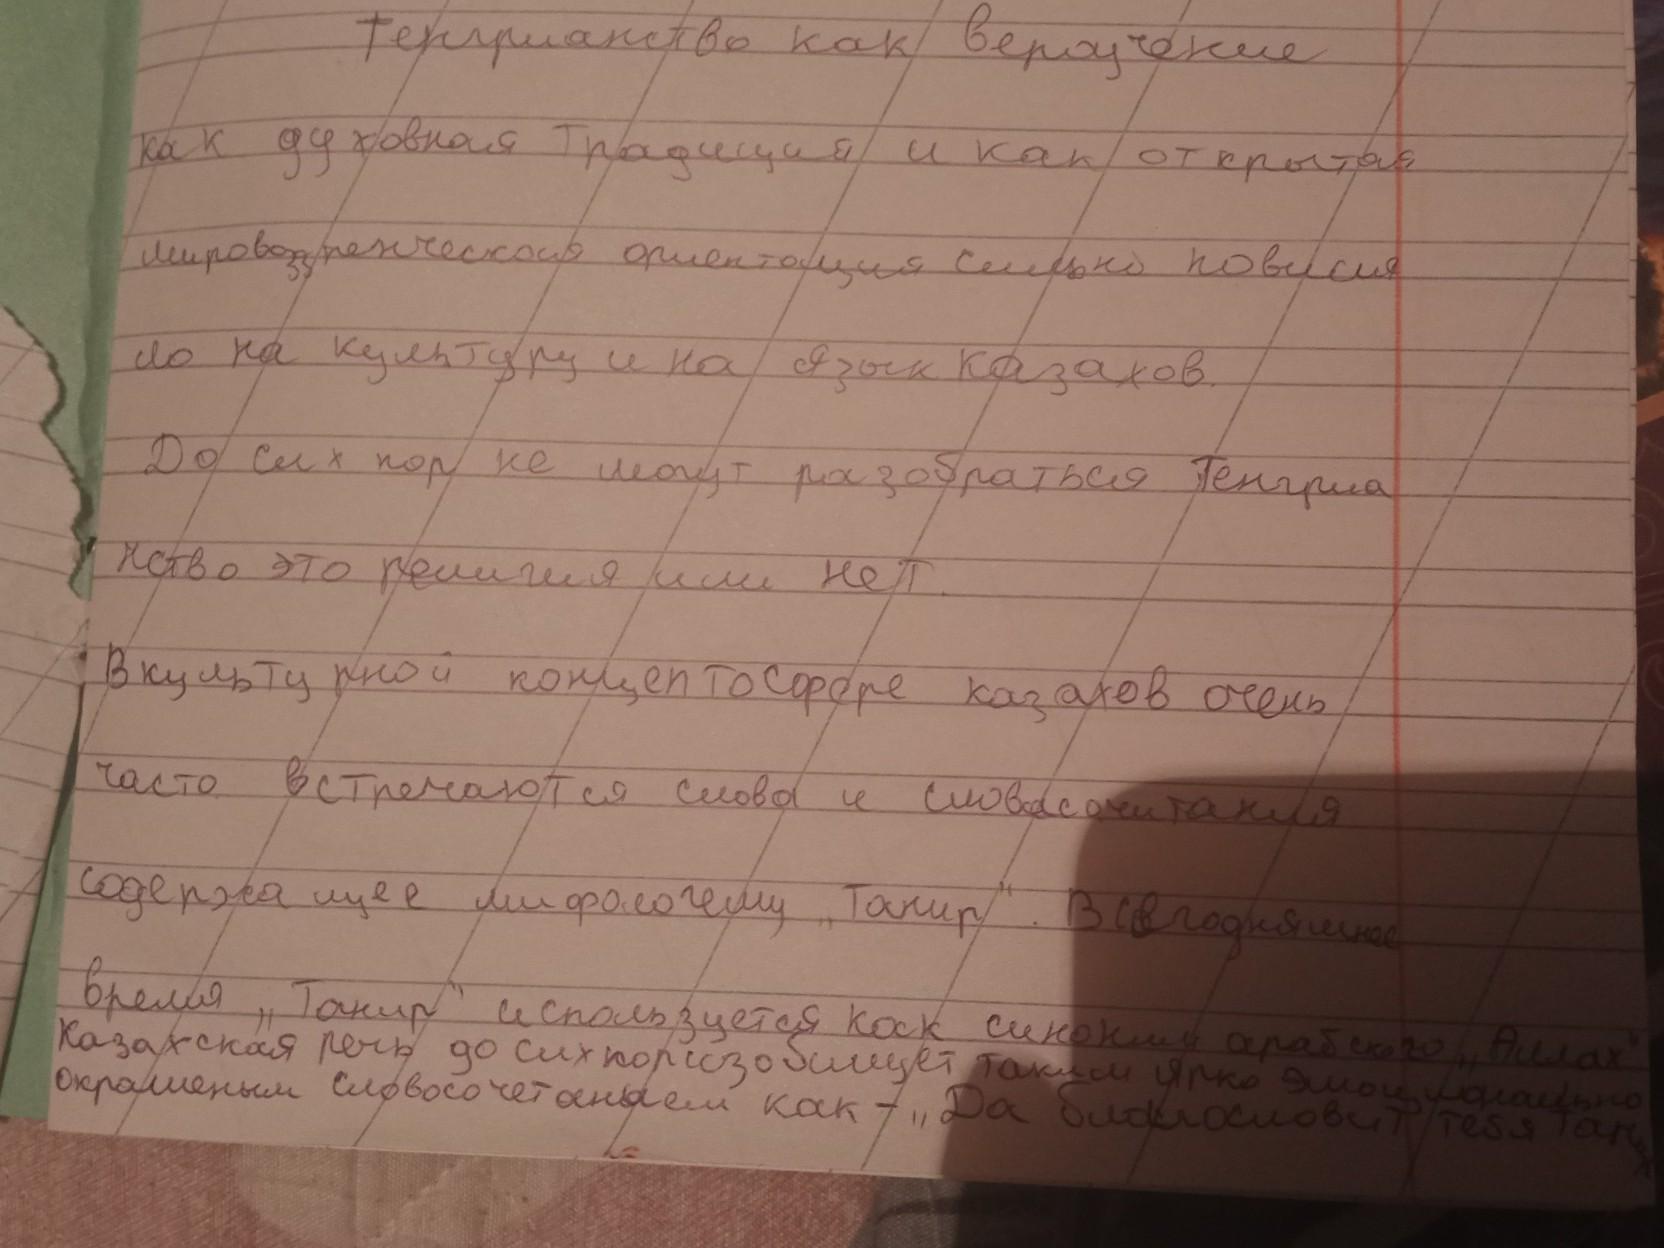 Тенгрианство как вероучение
как духовная традиция и как открытая
мировоззренческая ориентация сильно повлия
ло на культуру и на язык казахов.
До сих пор не могут разобраться Тенгриа
нство это религия или нет.
В культурной концептосфере казахов очень
часто встречаются слова и словасочитания
содержащее мифологему „Танир". В сегодняшнее
время „Танир" используется как синоним арабского „Аллах"
Казахская речь до сих пор изобилует таким ярко эмоционально
окрашеным словосочетанием как - „Да благословит тебя